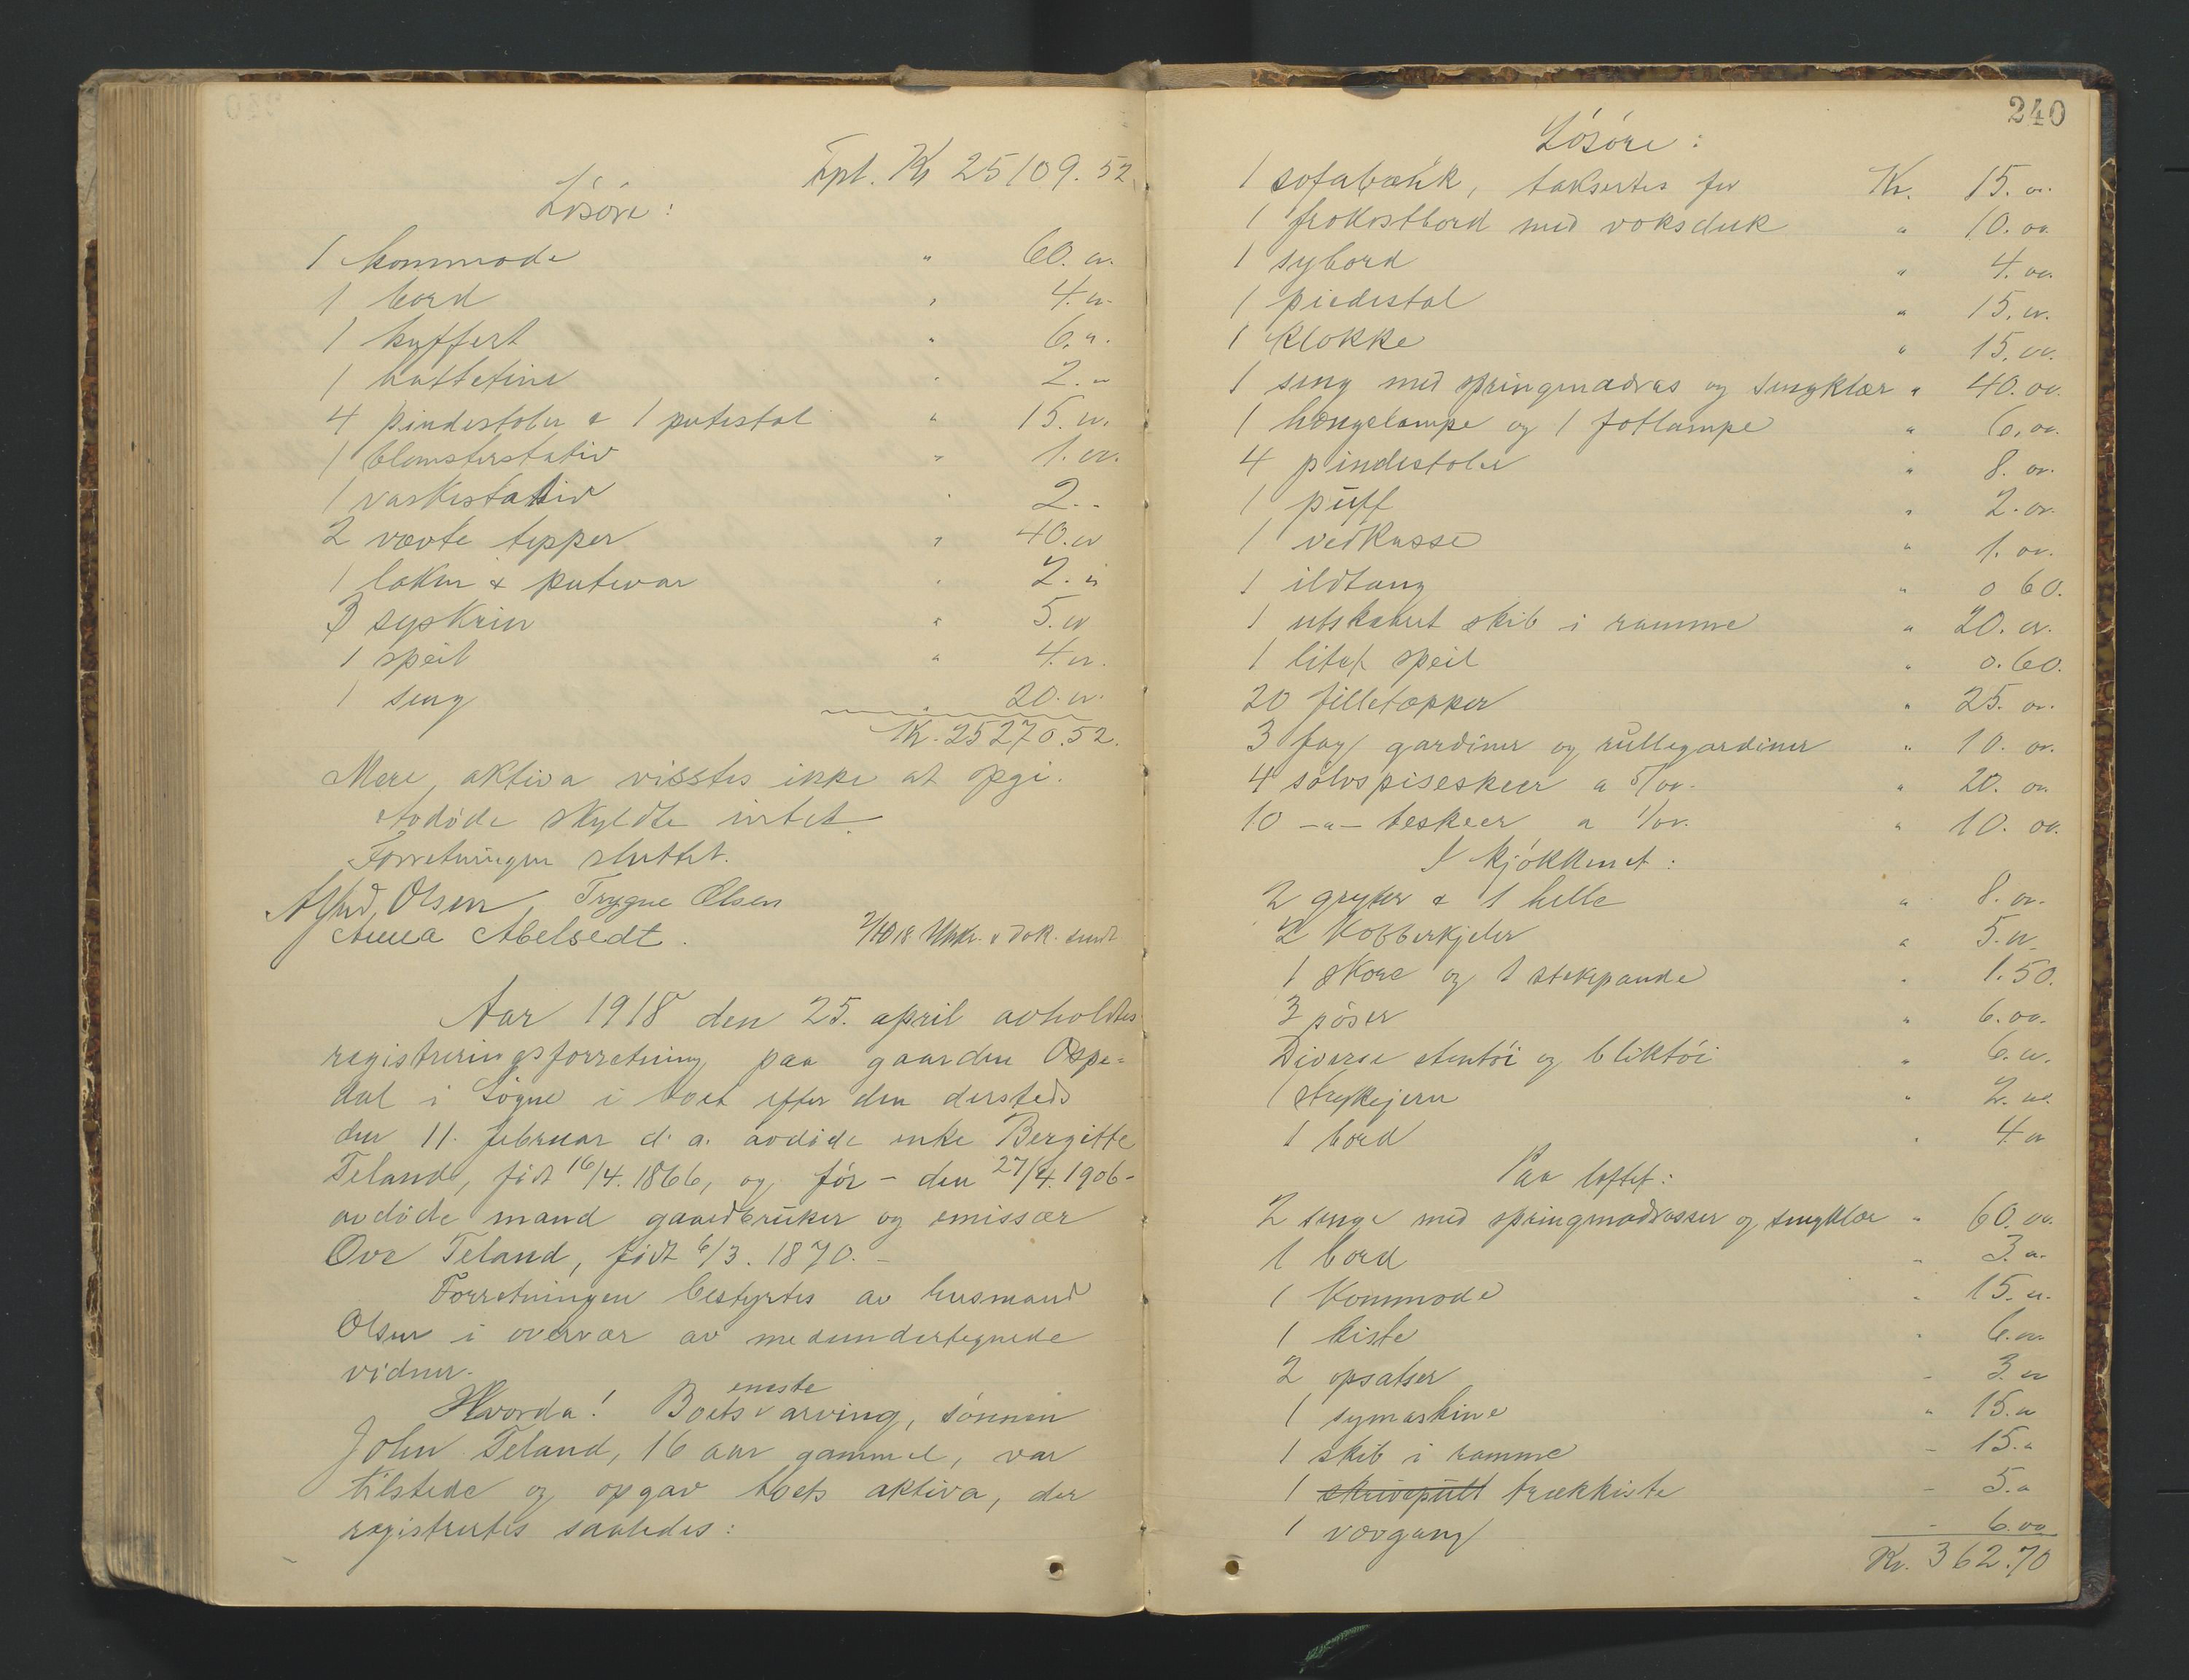 Fpt. Kr 25109.52
Løsøre:
1 kommode " 60.oo.
1 bord " 4.oo.
1 kuffert " 6."
1 hattetine " 2.oo
4 pindestoler & 1 putestol " 15.oo.
1 blomsterstativ " 1.oo.
1 vaskestativ " 2.-
2 vævte tepper " 40.oo
1 laken & putevar " 2."
3 syskrin " 5.oo
1 speil " 4.oo.
1 seng " 20.oo.
Kr. 25270.52.
Mere aktiva visstes ikke at opgi.
Avdøde skyldte intet.
Forretningen sluttet.
Olsen, Trygve Olsen
Anna Abelsedt.
2/10 18 Utskr. & dok. sendt
Aar 1918 den 25. april avholdtes
registreringsforretning paa gaarden Ospe=
dal i Søgne i boet efter den dersteds
den 11. februar d. a. avdøde enke Bergitte
Teland, født 16/4. 1866, og før – den 27/4. 1906 –
avdøde mand gaardbruker og emissær
Ove Teland, født 6/3. 1870. –
Forretningen bestyrtes av husmand
Olsen i overvær av medundertegnede
vidner.
Hvorda! Boets eneste arving, sønnen
John Teland, 16 aar gammel, var
tilstede og opgav boets aktiva, der
registrertes saaledes:
240
Løsøre:
1 sofabænk, taksertes for Kr. 15.oo.
1 frokostbord med voksduk " 10.oo.
1 sybord " 4.oo.
1 piedestal " 15.oo.
1 klokke " 15.oo.
1 seng med springmadras og sengklær " 40.oo.
1 hængelampe og 1 fotlampe " 6.oo.
4 pindestoler " 8.oo.
1 puff " 2.oo.
1 vedkasse " 1.oo.
1 ildtang " 0 60.
1 utskaaret skib i ramme " 20.oo.
1 litet speil " 0.60.
20 filletæpper " 25.oo.
3 fag gardiner og rullegardiner " 10.oo.
4 sølvspiseskeer a 5/oo. " 20.oo.
10 -"- teskeer a 1/oo. " 10.oo.
I kjøkkenet:
2 gryter & 1 helle " 8.oo.
2 kobberkjeler " 5.oo.
1 skore og 1 stekpande " 1.50.
3 pøser " 6.oo.
Diverse stentøi og bliktøi " 6.oo.
1 strykejern " 2.oo.
1 bord " 4.oo
Paa loftet:
2 senge med springmadrasser og sengklær " 60.oo.
1 bord " 3.oo.
1 kommode " 15.oo.
1 kiste " 6.oo.
2 opsatser " 3.oo
1 symaskine " 15.oo
1 skib i ramme – 15."
1 skrivepult trækkiste – 5."
1 vævgang – 6.oo
Kr. 362.70